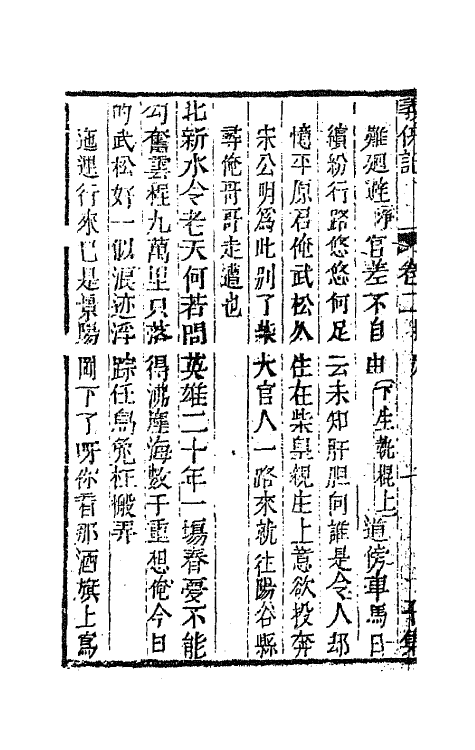 義俠記 卷二
難廻避 官差不自由〔下生執棍上〕道傍車馬日
繽紛行路悠悠何足云未知肝胆向誰是令人却
憶平原君俺武松久住在柴皇親庄上意欲投奔
宋公明爲此别了柴大官人一路來就往陽谷縣
尋俺哥哥走遭也
北新水令老天何苦問英雄二十年一塲春憂不能
勾奮雲程九萬里只落得沸塵海數千重想俺今日
的武松好一似浪迹浮踪任烏兔枉搬弄
迤逞行來已是景陽岡下了呀你看那酒旗上寫